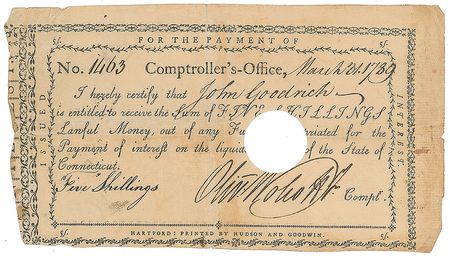 FOR THE PAYMENT OF
5/. 5/.
No. 1463 Comptroller's-Office, March 21. 1789
I hereby certify that John Goodrich
is entitled to receive the Sum of FIVE SHILLINGS
Lawful Money, out of any Fu riated for the
Payment of interest on the liquid of the State of
Connecticut.
Five Shillings Oliv Wolcott Jr. Compt.
5/. HARTFORD: PRINTED BY HUDSON AND GOODWIN. 5/.
ISSUED
INTEREST